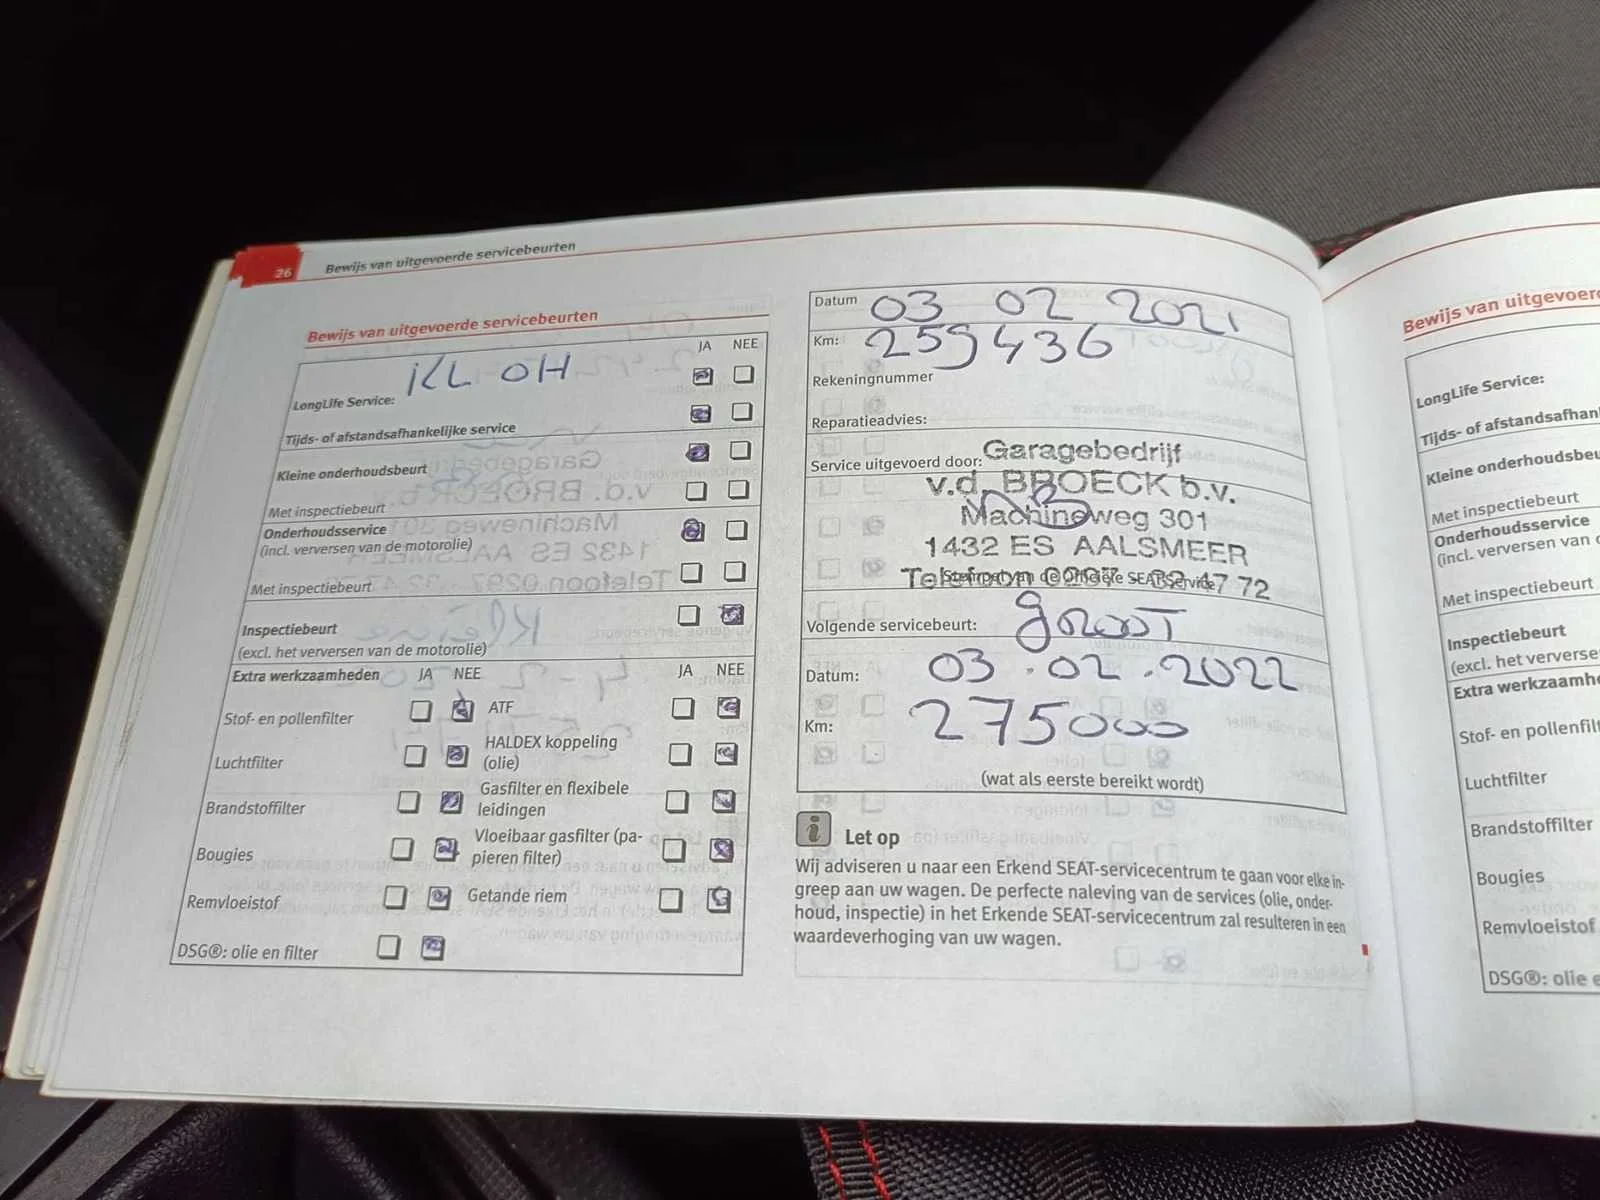 26
Bewijs van uitgevoerde servicebeurten
Bewijs van uitgevoerde servicebeurten
JA NEE
KL OH
LongLife Service:
Tijds- of afstandsafhankelijke service
Kleine onderhoudsbeurt
Met inspectiebeurt
Onderhoudsservice
(incl. verversen van de motorolie)
Met inspectiebeurt
Inspectiebeurt
(excl. het verversen van de motorolie)
Extra werkzaamheden JA NEE JA NEE
Stof- en pollenfilter ATF
Luchtfilter HALDEX koppeling
(olie)
Brandstoffilter Gasfilter en flexibele
leidingen
Bougies Vloeibaar gasfilter (pa-
pieren filter)
Remvloeistof Getande riem
DSG®: olie en filter
Datum 03 02 2021
Km: 259436
Rekeningnummer
Reparatieadvies:
Service uitgevoerd door: Garagebedrijf
v.d. BROECK b.v.
Machineweg 301
1432 ES AALSMEER
Telefoon 0297 - 32 47 72
Stempel van de Officiële SEAT Service
Volgende servicebeurt: groot
Datum: 03.02.2022
Km: 275000
(wat als eerste bereikt wordt)
Let op
Wij adviseren u naar een Erkend SEAT-servicecentrum te gaan voor elke in-
greep aan uw wagen. De perfecte naleving van de services (olie, onder-
houd, inspectie) in het Erkende SEAT-servicecentrum zal resulteren in een
waardeverhoging van uw wagen.
Bewijs van uitgevoer
LongLife Service:
Tijds- of afstandsafhan
Kleine onderhoudsbeu
Met inspectiebeurt
Onderhoudsservice
(incl. verversen van
Met inspectiebeurt
Inspectiebeurt
(excl. het ververse
Extra werkzaamhe
Stof- en pollenfilt
Luchtfilter
Brandstoffilter
Bougies
Remvloeistof
DSG®: olie e